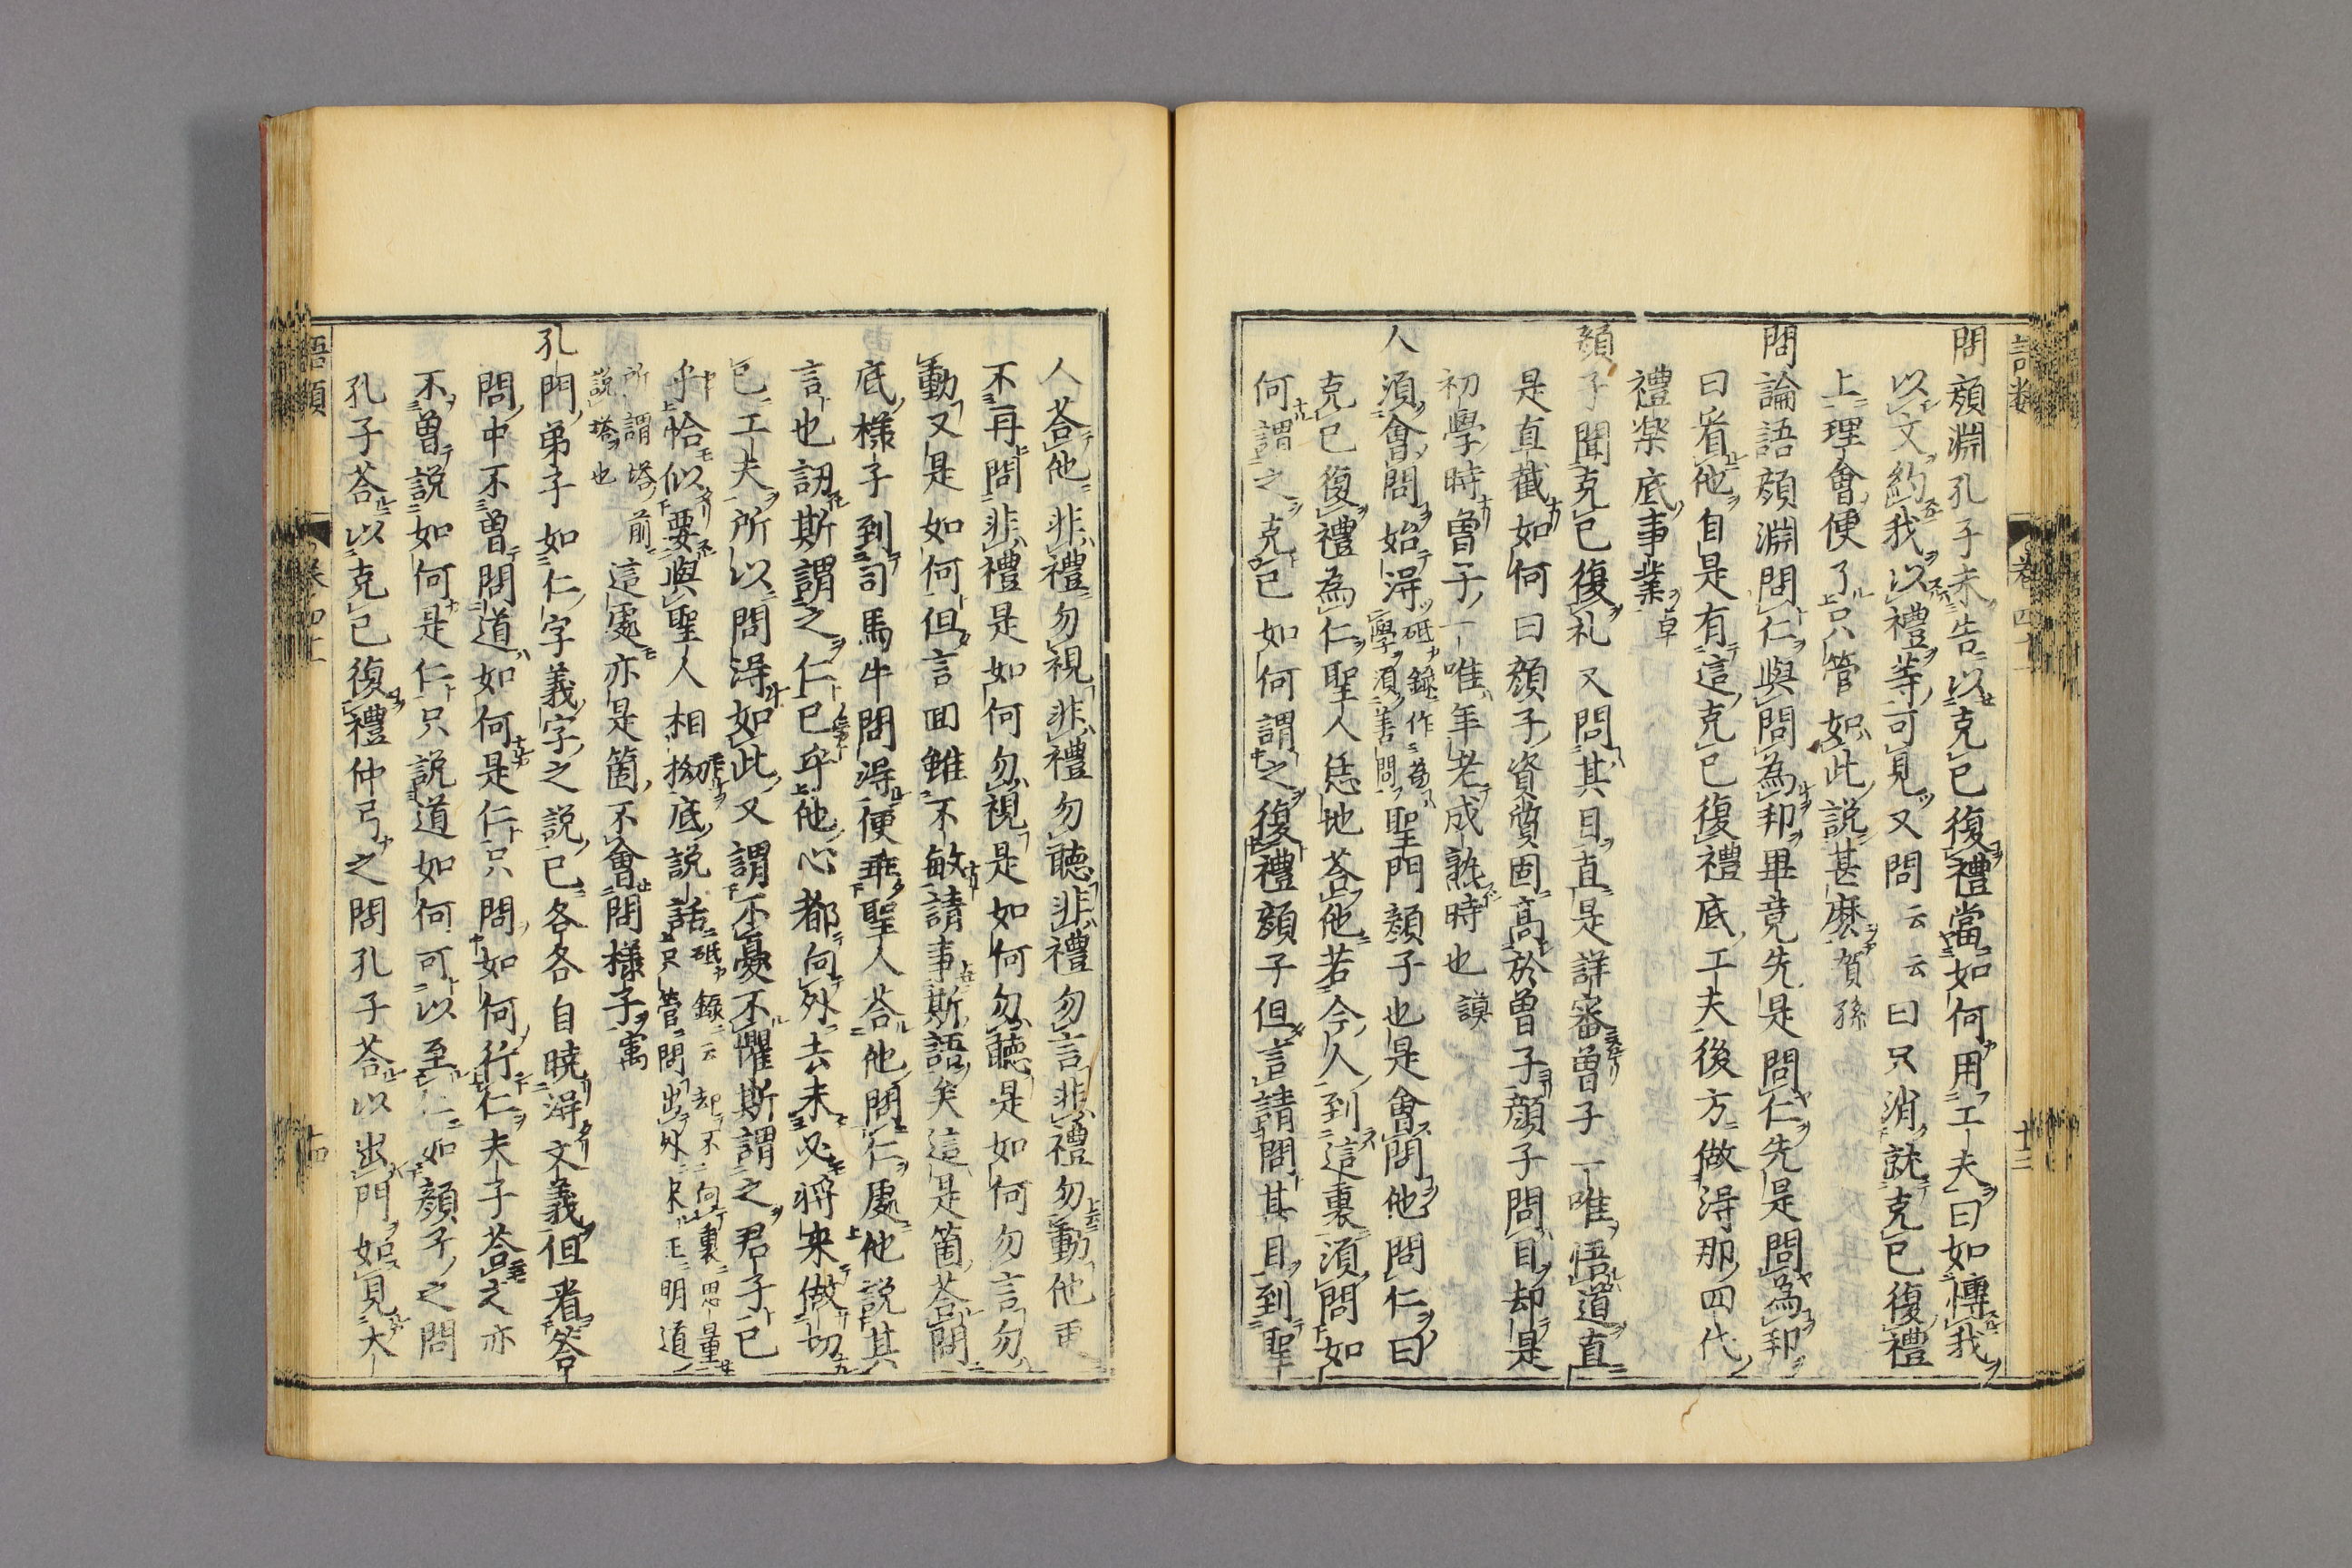 語類 卷四十一 十三
問顔淵孔子未告以克己復禮當如何用工夫曰如博我
以文約我以禮等可見又問云云曰只消就克己復禮
上理會便了只管如此説甚麽賀孫
問論語顔淵問仁與問為邦畢竟先是問仁先是問為邦
曰看他自是有這克己復禮底工夫後方做得那四代
禮楽底事業卓
顔子聞克己復礼又問其目直是詳審曽子一唯悟道直
是直截如何曰顔子資質固高於曽子顔子問目却是
初學時曽子一唯年老成熟時也謨
人須會問始得砥録作為學須善問聖門顔子也是會問他問仁曰
克己復禮為仁聖人恁地荅他若今人到這裏須問如
何謂之克己如何謂之復禮顔子但言請問其目到聖
人荅他非禮勿視非禮勿聽非禮勿言非禮勿動他更
不再問非禮是如何勿視是如何勿聽是如何勿言勿
動又是如何但言回雖不敏請事斯語矣這是箇荅問
底様子到司馬牛問得便乖聖人荅他問仁處他説其
言也訒斯謂之仁已乎他心都向外去未必将来做切
己工夫所以問得如此又謂不憂不懼斯謂之君子已
乎恰似要與聖人相拗底説話砥録云却不向裏思量只管問出外来正明道
所謂塔前説塔也這處亦是箇不會問様子㝢
孔門弟子如仁字義字之説已各各自曉得文義但看荅
問中不曽問道如何是仁只問如何行仁夫子荅之亦
不曽説如何是仁只説道如何可以至仁如顔子之問
孔子荅以克己復禮仲弓之問孔子荅以出門如見大
語類 卷四十一 十四